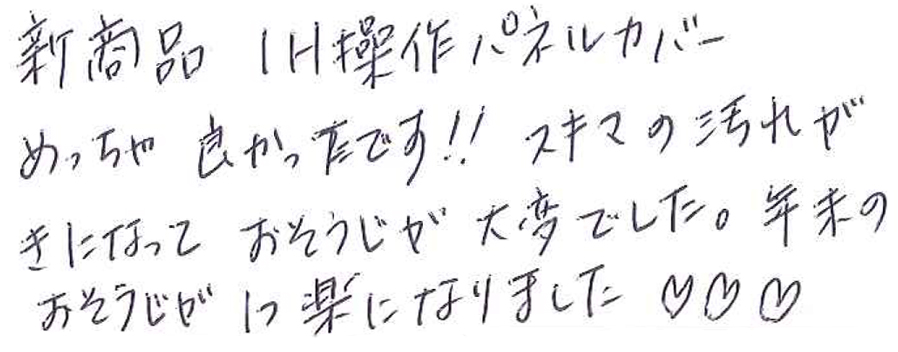 新商品 IH操作パネルカバー
めっちゃ 良かったです!! スキマの汚れが
きになって おそうじが 大変でした。年末の
おそうじが 1つ楽になりました ♡♡♡